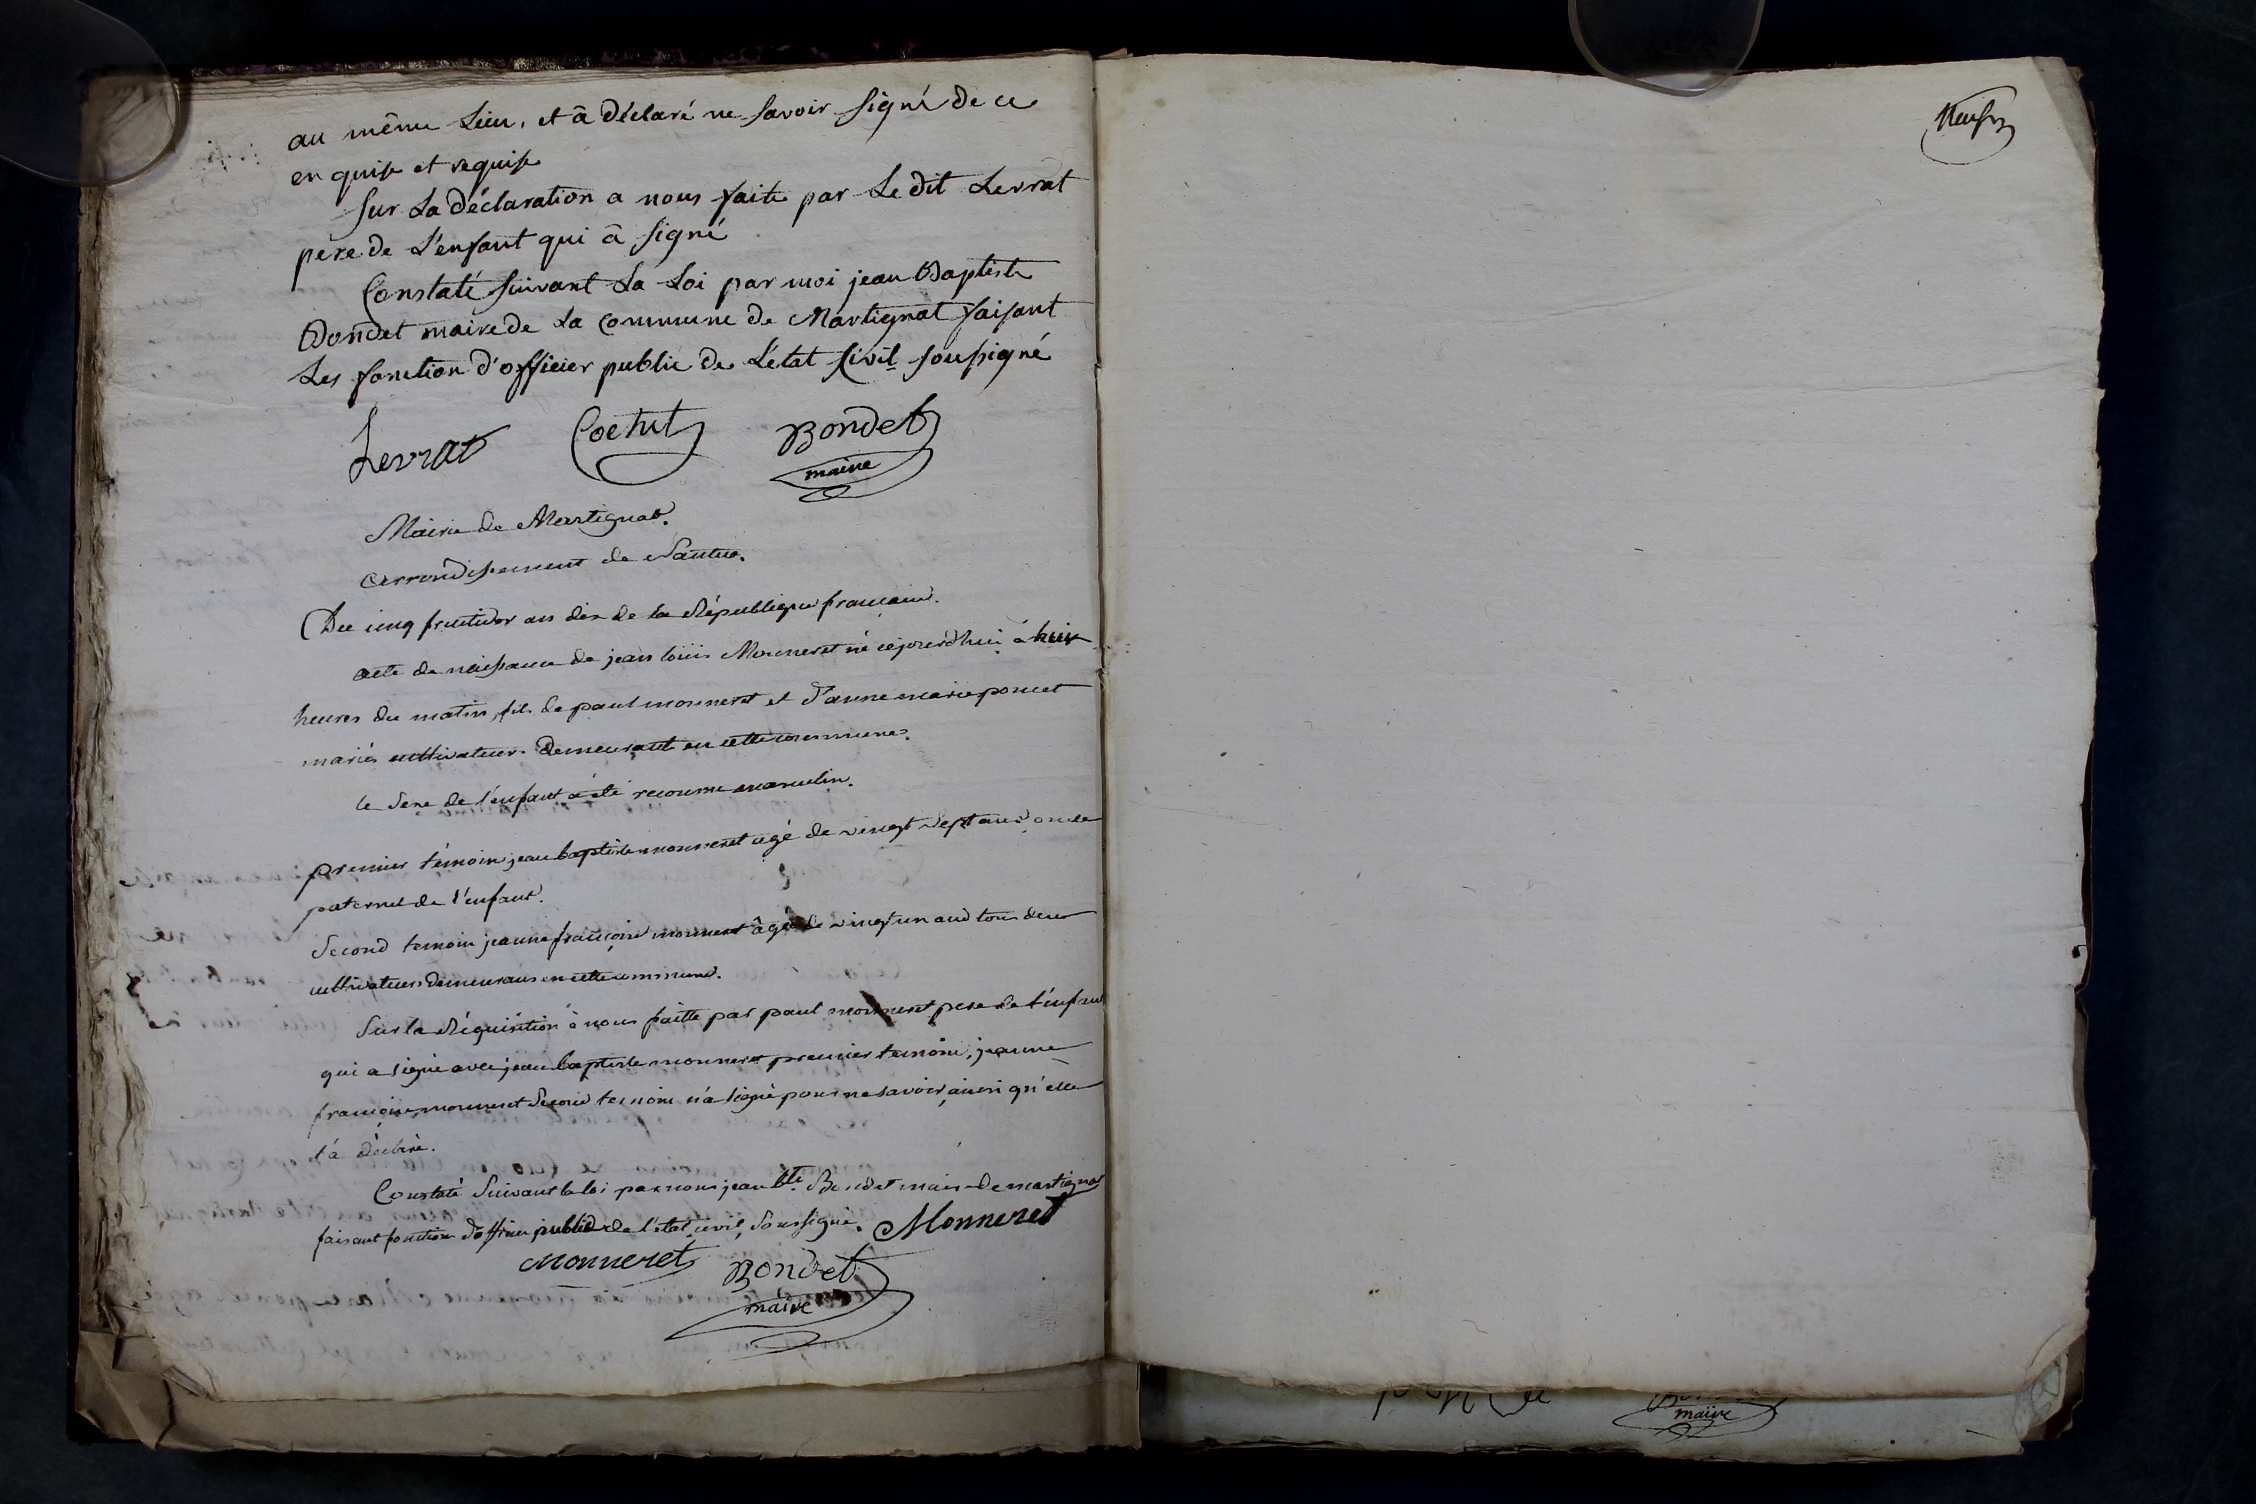 au même Lieu, et â déclaré ne Savoir Signé de ce
enquise et requise
Sur La déclaration a nous faite par Le dit Levrat
pere de L'enfant qui â Signé
Constaté Suivant La Loi par moi jean Baptiste
Bondet maire de La Commune de Martignat faisant
Les fonction d'officier public de L'état Civil soussigné
Levrat Cochet Bondet
maire
Mairie de Martignat.
arrondissement de Nantua.
Du cinq fructidor an dix de la République française.
acte de naissance de jean loüis Monneret né cejourd'hui à huit
heures du matin, fils de paul monneret et d'anne marie poncet
mariés cultivateurs demeurant en cette commune.
le Sexe de l'enfant a été reconnu masculin.
premier témoin jean baptiste monneret agé de vingt sept ans oncle
paternel de l'enfant.
Second temoin jeanne françoise monneret âgée de vingt un ans tous deux
cultivateurs demeurans en cette commune.
Sur la Réquisition à nous faitte par paul monneret pere de l'enfant
qui a signé avec jean baptiste monneret premier temoin, jeanne
françoise monneret Second temoin n'a signé pour ne savoir, ainsi qu'elle
l'a déclaré.
Constaté Suivant la loi par nous jean bte Bondet maire de martignat
faisant fonction d'officier public de l'état civil, Soussigné. Monneret
Monneret Bondet
maire
Neuf
maire